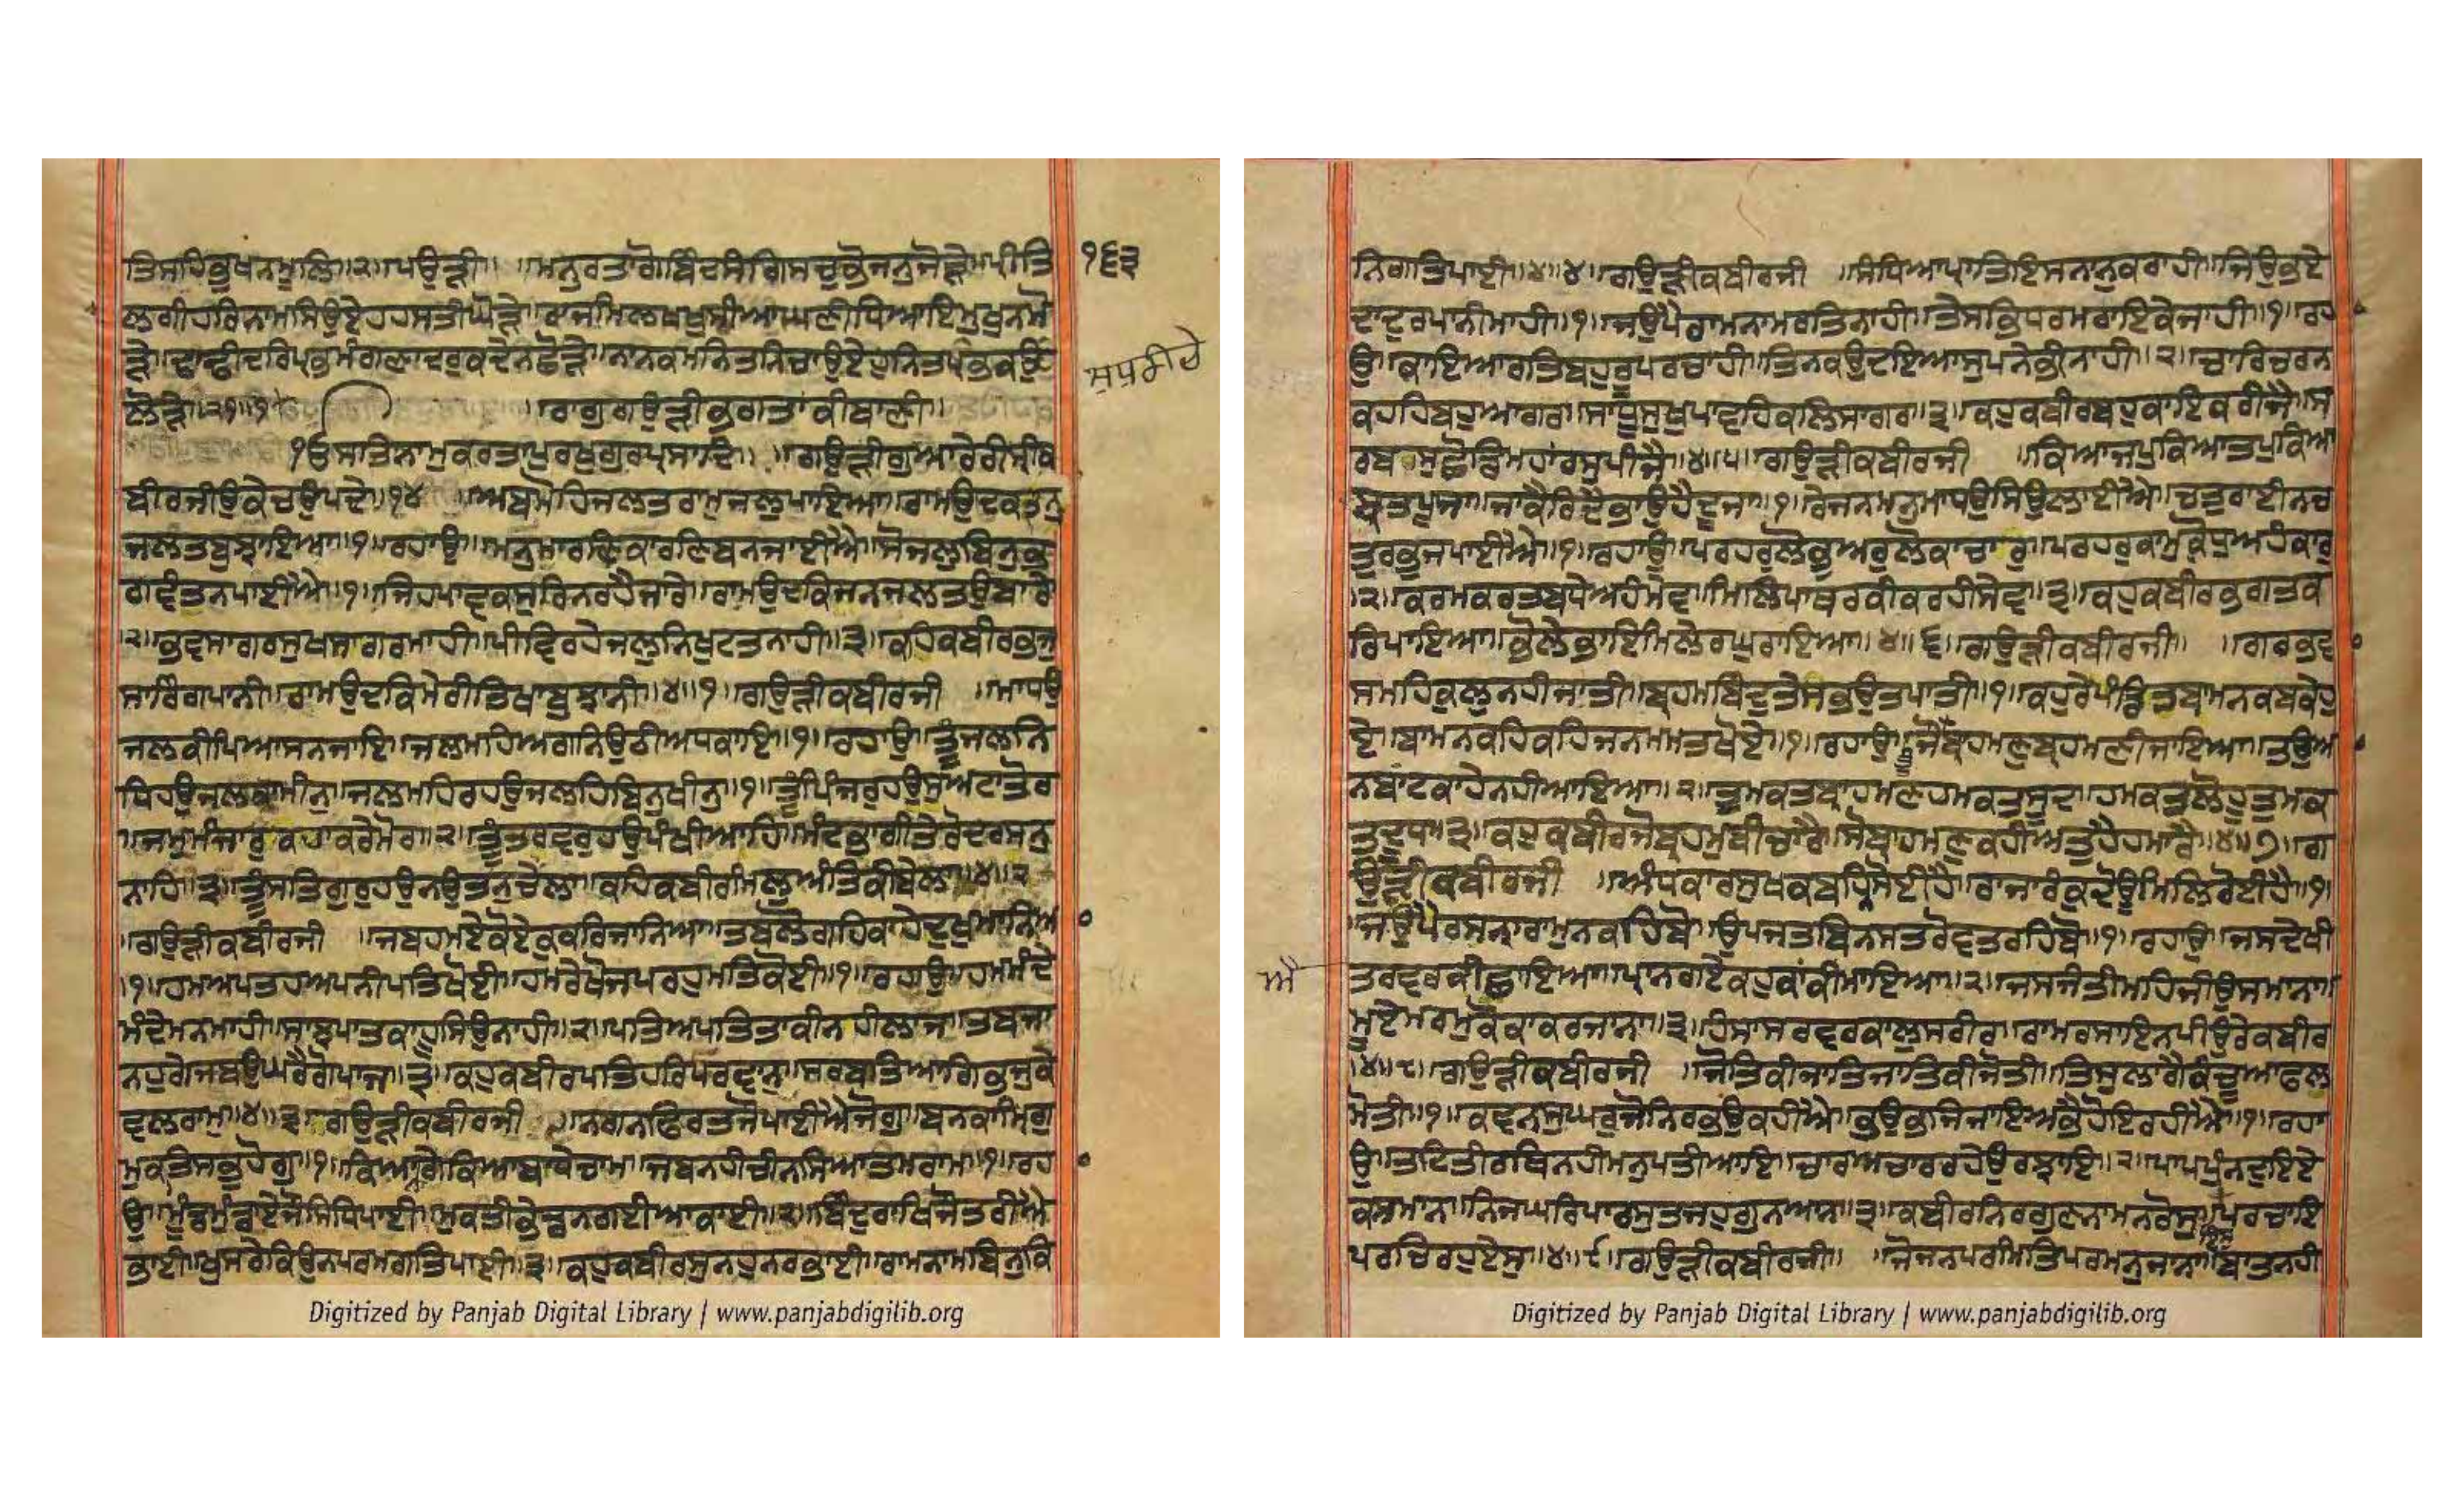 ਤਿਸਹਰਿਕੁਧਨਮੁਲਿ॥੨॥ਪਉੜੀ॥ ॥ਮਨੁਰਤਾਗੋਬਿੰਦਸੰਗਿਸਚੁਭੋਜਨੁਜੋੜੇ॥ਪ੍ਰੀਤਿ
ਲਗੀਹਰਿਨਾਮਸਿਉਏਹਸਤੀਘੋੜੇ॥ਰਾਜਮਿਲਖਖੁਸੀਆਘਣੀਧਿਆਇਮੁਖੁਨਮੋ
ੜੇ॥ਢਾਢੀਦਰਿਪ੍ਰਭਮੰਗਣਾਦਰੁਕਦੇਨਛੋੜੇ॥ਨਾਨਕਮਨਿਤਨਿਚਾਉਏਹੁਨਿਤਪ੍ਰਭਕਉ
ਲੋੜੇ॥੨੧॥੧॥ ॥ਰਾਗੁਗਉੜੀਭਗਤਾਕੀਬਾਣੀ॥
੧ਓਸਤਿਨਾਮੁਕਰਤਾਪੁਰਖੁਗੁਰਪ੍ਰਸਾਦਿ॥ ॥ਗਉੜੀਗੁਆਰੇਰੀਸ੍ਰੀਕ
ਬੀਰਜੀਉਕੇਚਉਪਦੇ॥੧੪ ॥ਅਬਮੋਹਿਜਲਤਰਾਮਜਲੁਪਾਇਆ॥ਰਾਮਉਦਕਤਨੁ
ਜਲਤਬੁਝਾਇਆ॥੧॥ਰਹਾਉ॥ਮਨੁਮਾਰਣਿਕਾਰਣਿਬਨਜਾਈਐ॥ਸੋਜਲੁਬਿਨੁਭ
ਗਵੰਤਨਪਾਈਐ॥੧॥ਜਿਹਪਾਵਕਸੁਰਿਨਰਹੈਜਾਰੇ॥ਰਾਮਉਦਕਿਜਨਜਲਤਉਬਾਰੇ
॥੨॥ਭਵਸਾਗਰਸੁਖਸਾਗਰਮਾਹੀ॥ਪੀਵਿਰਹੇਜਲੁਨਿਖੁਟਤਨਾਹੀ॥੩॥ਕਹਿਕਬੀਰਭਜੁ
ਸਾਰਿੰਗਪਾਨੀ॥ਰਾਮਉਦਕਿਮੇਰੀਤਿਖਾਬੁਝਾਨੀ॥੪॥੧॥ਗਉੜੀਕਬੀਰਜੀ ॥ਮਾਧਉ
ਜਲਕੀਪਿਆਸਨਜਾਇ॥ਜਲਮਹਿਅਗਨਿਉਠੀਅਧਕਾਇ॥੧॥ਰਹਾਉ॥ਤੂੰਜਲਨਿ
ਧਿਹਉਜਲਕਾਮੀਨੁ॥ਜਲਮਹਿਰਹਉਜਲਹਿਬਿਨੁਖੀਨੁ॥੧॥ਤੂੰਪਿੰਜਰੁਹਉਸੂਅਟਾਤੋਰ
॥ਜਮੁਮੰਜਾਰੁਕਹਾਕਰੈਮੋਰ॥੨॥ਤੂੰਤਰਵਰੁਹਉਪੰਖੀਆਹਿ॥ਮੰਦਭਾਗੀਤੇਰੋਦਰਸਨੁ
ਨਾਹਿ॥੩॥ਤੂੰਸਤਿਗੁਰੁਹਉਨਉਤਨੁਚੇਲਾ॥ਕਹਿਕਬੀਰਮਿਲੁਅੰਤਿਕੀਬੇਲਾ॥੪॥੨
॥ਗਉੜੀਕਬੀਰਜੀ ॥ਜਬਹਮਏਕੋਏਕੁਕਰਿਜਾਨਿਆ॥ਤਬਲੋਗਹਿਕਾਹੇਦੁਖੁਮਾਨਿਆ
॥੧॥ਹਮਅਪਤਹਅਪਨੀਪਤਿਖੋਈ॥ਹਮਰੇਖੋਜਪਰਹੁਮਤਿਕੋਈ॥੧॥ਰਹਾਉ॥ਹਮਮੰਦੇ
ਮੰਦੇਮਨਮਾਹੀ॥ਸਾਝਪਾਤਕਾਹੂਸਿਉਨਾਹੀ॥੨॥ਪਤਿਅਪਤਿਤਾਕੀਨਹੀਲਾਜ॥ਤਬਜਾ
ਨਹੁਗੇਜਬਉਘਰੈਗੋਪਾਜ॥੩॥ਕਹੁਕਬੀਰਪਤਿਹਰਿਪਰਵਾਨੁ॥ਸਰਬਤਿਆਗਿਭਜੁਕੇ
ਵਲਰਾਮੁ॥੪॥੩॥ਗਉੜੀਕਬੀਰਜੀ ॥ਨਗਨਫਿਰਤਜੋਪਾਈਐਜੋਗੁ॥ਬਨਕਾਮਿਰਗੁ
ਮੁਕਤਿਸਭੁਹੋਗੁ॥੧॥ਕਿਆਨਾਗੇਕਿਆਬਾਧੇਚਾਮ॥ਜਬਨਹੀਚੀਨਸਿਆਤਮਰਾਮ॥੧॥ਰਹਾ
ਉ॥ਮੂੰਡਮੁੰਡਾਏਜੌਸਿਧਿਪਾਈ॥ਮੁਕਤੀਭੇਡਨਗਈਆਕਾਈ॥੨॥ਬਿੰਦੁਰਾਖਿਜੌਤਰੀਐ
ਭਾਈ॥ਖੁਸਰੇਕਿਉਨਪਰਮਗਤਿਪਾਈ॥੩॥ਕਹੁਕਬੀਰਸੁਨਹੁਨਰਭਾਈ॥ਰਾਮਨਾਮਬਿਨੁਕਿ
੧੬੩
Digitized by Panjab Digital Library | www.panjabdigilib.org
ਨਿਗਤਿਪਾਈ॥੪॥੪॥ਗਉੜੀਕਬੀਰਜੀ ॥ਸੰਧਿਆਪ੍ਰਾਤਿਇਸਨਾਨੁਕਰਾਹੀ॥ਜਿਉਭਏ
ਦਾਦੁਰਪਾਨੀਮਾਹੀ॥੧॥ਜਉਪੈਰਾਮਨਾਮਰਤਿਨਾਹੀ॥ਤੇਸਭਿਧਰਮਰਾਇਕੇਜਾਹੀ॥੧॥ਰਹਾ
ਉ॥ਕਾਇਆਰਤਿਬਹੁਰੂਪਰਚਾਹੀ॥ਤਿਨਕਉਦਇਆਸੁਪਨੇਭੀਨਾਹੀ॥੨॥ਚਾਰਿਚਰਨ
ਕਹਹਿਬਹੁਆਗਰ॥ਸਾਧੂਸੁਖੁਪਾਵਹਿਕਲਿਸਾਗਰ॥੩॥ਕਹੁਕਬੀਰਬਹੁਕਾਇਕਰੀਜੈ॥ਸ
ਰਬਸੁਛੋਡਿਮਹਾਰਸੁਪੀਜੈ॥੪॥੫॥ਗਉੜੀਕਬੀਰਜੀ ॥ਕਿਆਜਪੁਕਿਆਤਪੁਕਿਆ
ਬ੍ਰਤਪੂਜਾ॥ਜਾਕੈਰਿਦੈਭਾਉਹੈਦੂਜਾ॥੧॥ਰੇਜਨਮਨੁਮਾਧਉਸਿਉਲਾਈਐ॥ਚਤੁਰਾਈਨਚ
ਤੁਰਭੁਜਪਾਈਐ॥੧॥ਰਹਾਉ॥ਪਰਹਰੁਲੋਭੁਅਰੁਲੋਕਾਚਾਰੁ॥ਪਰਹਰੁਕਾਮੁਕ੍ਰੋਧੁਅਹੰਕਾਰੁ
॥੨॥ਕਰਮਕਰਤਬਧੇਅਹੰਮੇਵ॥ਮਿਲਿਪਾਥਰਕੀਕਰਹੀਸੇਵ॥੩॥ਕਹੁਕਬੀਰਭਗਤਿਕ
ਰਿਪਾਇਆ॥ਭੋਲੇਭਾਇਮਿਲੇਰਘੁਰਾਇਆ॥੪॥੬॥ਗਉੜੀਕਬੀਰਜੀ॥ ॥ਗਰਭਵਾ
ਸਮਹਿਕੁਲੁਨਹੀਜਾਤੀ॥ਬ੍ਰਹਮਬਿੰਦੁਤੇਸਭਉਤਪਾਤੀ॥੧॥ਕਹੁਰੇਪੰਡਿਤਬਾਮਨਕਬਕੇਹੁ
ਏ॥ਬਾਮਨਕਹਿਕਹਿਜਨਮਮਤਖੋਏ॥੧॥ਰਹਾਉ॥ਜੌਤੂੰਬ੍ਰਾਹਮਣੁਬ੍ਰਹਮਣੀਜਾਇਆ॥ਤਉਆ
ਨਬਾਟਕਾਹੇਨਹੀਆਇਆ॥੨॥ਤੁਮਕਤਬ੍ਰਾਹਮਣਹਮਕਤਸੂਦ॥ਹਮਕਤਲੋਹੂਤੁਮਕ
ਤਦੂਧ॥੩॥ਕਹੁਕਬੀਰਜੋਬ੍ਰਹਮੁਬੀਚਾਰੈ॥ਸੋਬ੍ਰਾਹਮਣੁਕਹੀਅਤੁਹੈਹਮਾਰੈ॥੪॥੭॥ਗ
ਉੜੀਕਬੀਰਜੀ ॥ਅੰਧਕਾਰਸੁਖਕਬਹਿਨਸੋਈਹੈ॥ਰਾਜਾਰੰਕੁਦੋਊਮਿਲਿਰੋਈਹੈ॥੧॥
ਜਉਪੈਰਸਨਾਰਾਮੁਨਕਹਿਬੋ॥ਉਪਜਤਬਿਨਸਤਰੋਵਤਰਹਿਬੋ॥੧॥ਰਹਾਉ॥ਜਸਦੇਖੀ
ਤਰਵਰਕੀਛਾਇਆ॥ਪ੍ਰਾਨਗਏਕਹੁਕਾਕੀਮਾਇਆ॥੨॥ਜਸਜੰਤੀਮਹਿਜੀਉਸਮਾਨਾ॥
ਮੂਏਮਰਮੁਕੋਕਾਕਰਜਾਨਾ॥੩॥ਹੰਸਾਸਰਵਰਕਾਲੁਸਰੀਰ॥ਰਾਮਰਸਾਇਨਪੀਉਰੇਕਬੀਰ
॥੪॥੮॥ਗਉੜੀਕਬੀਰਜੀ ॥ਜੋਤਿਕੀਜਾਤਿਜਾਤਿਕੀਜੋਤੀ॥ਤਿਤੁਲਾਗੇਕੰਚੂਆਫਲ
ਮੋਤੀ॥੧॥ਕਵਨੁਸੁਘਰੁਜੋਨਿਰਭਉਕਹੀਐ॥ਭਉਭਜਿਜਾਇਅਭੈਹੋਇਰਹੀਐ॥੧॥ਰਹਾ
ਉ॥ਤਟਿਤੀਰਥਿਨਹੀਮਨੁਪਤੀਆਇ॥ਚਾਰਅਚਾਰਰਹੇਉਰਝਾਇ॥੨॥ਪਾਪਪੁੰਨਦੁਇਏ
ਕਸਮਾਨ॥ਨਿਜਘਰਿਪਾਰਸੁਤਜਹੁਗੁਨਆਨ॥੩॥ਕਬੀਰਨਿਰਗੁਣਨਾਮਨਰੋਸੁ॥ਇਸੁਪਰਚਾਇ
ਪਰਚਿਰਹੁਏਸੁ॥੪॥੯॥ਗਉੜੀਕਬੀਰਜੀ॥ ॥ਜੋਜਨਪਰਮਿਤਿਪਰਮਨੁਜਾਨਾ॥ਬਾਤਨਹੀ
Digitized by Panjab Digital Library | www.panjabdigilib.org